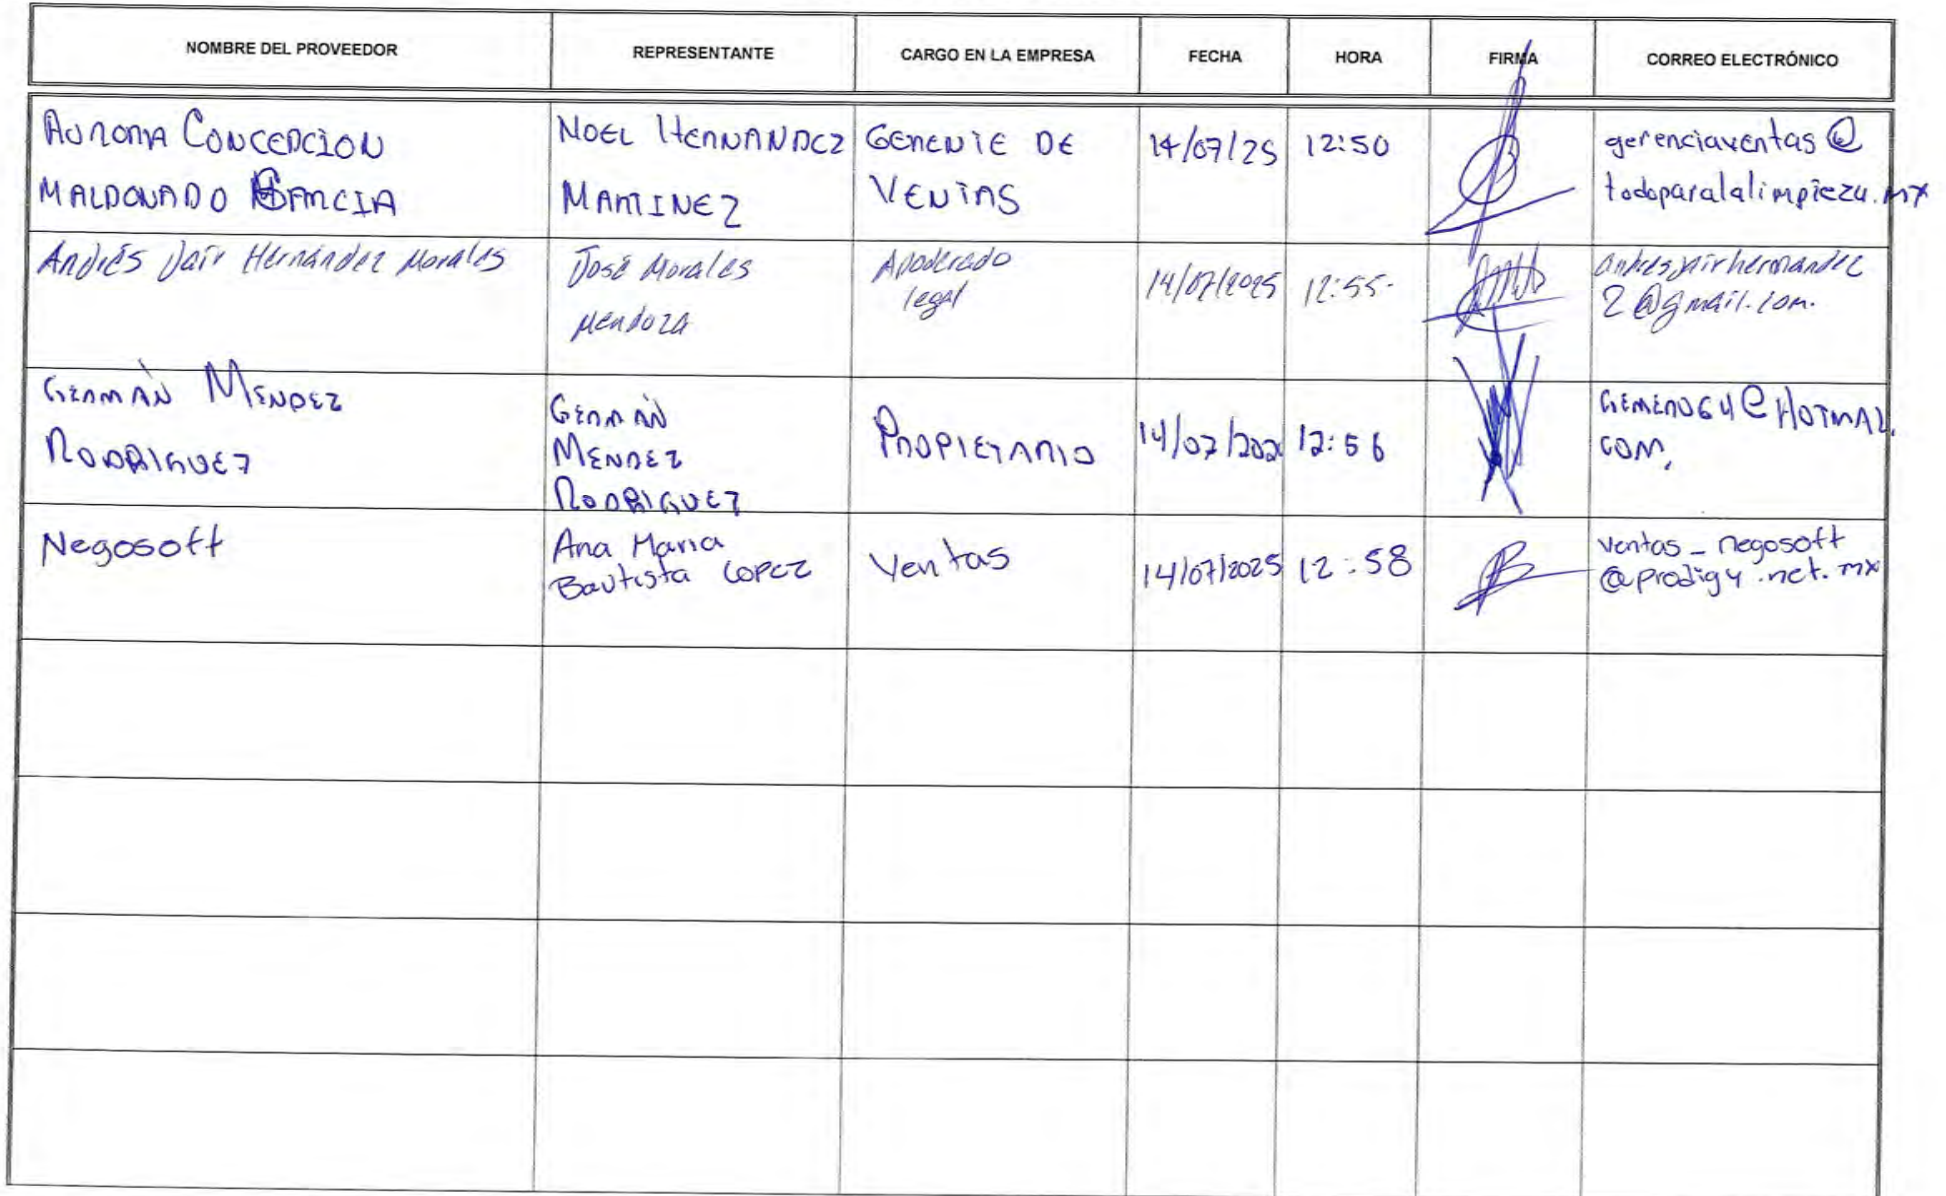 NOMBRE DEL PROVEEDOR REPRESENTANTE CARGO EN LA EMPRESA FECHA HORA FIRMA CORREO ELECTRÓNICO
AURORA CONCEPCION
MALDONADO GARCIA
NOEL HERNANDEZ
MARTINEZ
GERENTE DE
VENTAS
14/07/25
12:50
gerenciaventas@
todoparalalimpieza.mx
Andrés Jair Hernández Morales
José Morales
Mendoza
Apoderado
legal
14/07/2025
12:55
andresjairhernandez
2@gmail.com.
GERMÀN MENDEZ
RODRIGUEZ
GERMÀN
MENDEZ
RODRIGUEZ
PROPIETARIO
14/07/202
12:56
COM,
Negosoft
Ana Maria
Bautista Lopez
Ventas
14/07/2025
12:58
ventas_negosoft
@prodigy.net.mx